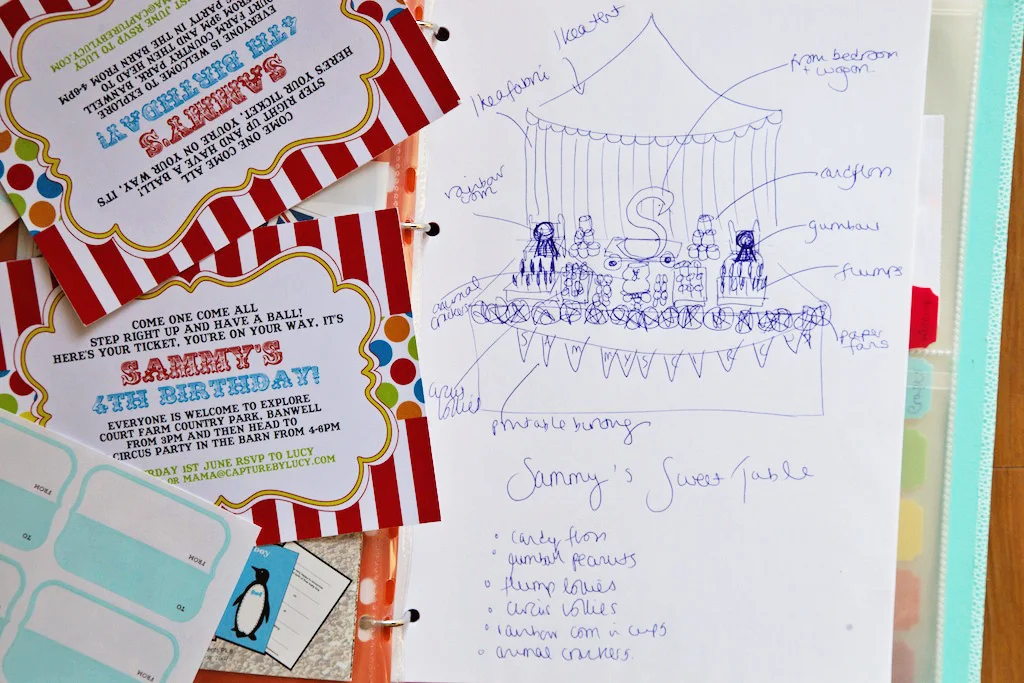 COME ONE COME ALL
STEP RIGHT UP AND HAVE A BALL!
HERE'S YOUR TICKET, YOU'RE ON YOUR WAY, IT'S
SAMMY'S
4TH BIRTHDAY!
EVERYONE IS WELCOME TO EXPLORE
COURT FARM COUNTRY PARK, BANWELL
FROM 3PM AND THEN HEAD TO
CIRCUS PARTY IN THE BARN FROM 4-6PM
1ST JUNE RSVP TO LUCY
OR MAMA@CAPTUREBYLUCY.COM
COME ONE COME ALL
STEP RIGHT UP AND HAVE A BALL!
HERE'S YOUR TICKET, YOU'RE ON YOUR WAY, IT'S
SAMMY'S
4TH BIRTHDAY!
EVERYONE IS WELCOME TO EXPLORE
COURT FARM COUNTRY PARK, BANWELL
FROM 3PM AND THEN HEAD TO
PARTY IN THE BARN FROM 4-6PM
1ST JUNE RSVP TO LUCY
MAMA@CAPTUREBYLUCY.COM
FROM
TO
FROM
TO
FROM
TO
Ikea tent
Ikea fabric
from bedroom
+ wagon
rainbow
corn
candy floss
gumballs
flumps
animal
crackers
paper
fans
circus
lollies
printable bunting
S
SAMMYS CIRCUS
Sammy's Sweet Table
• candy floss
• gumball peanuts
• flump lollies
• circus lollies
• rainbow corn in cups
• animal crackers.